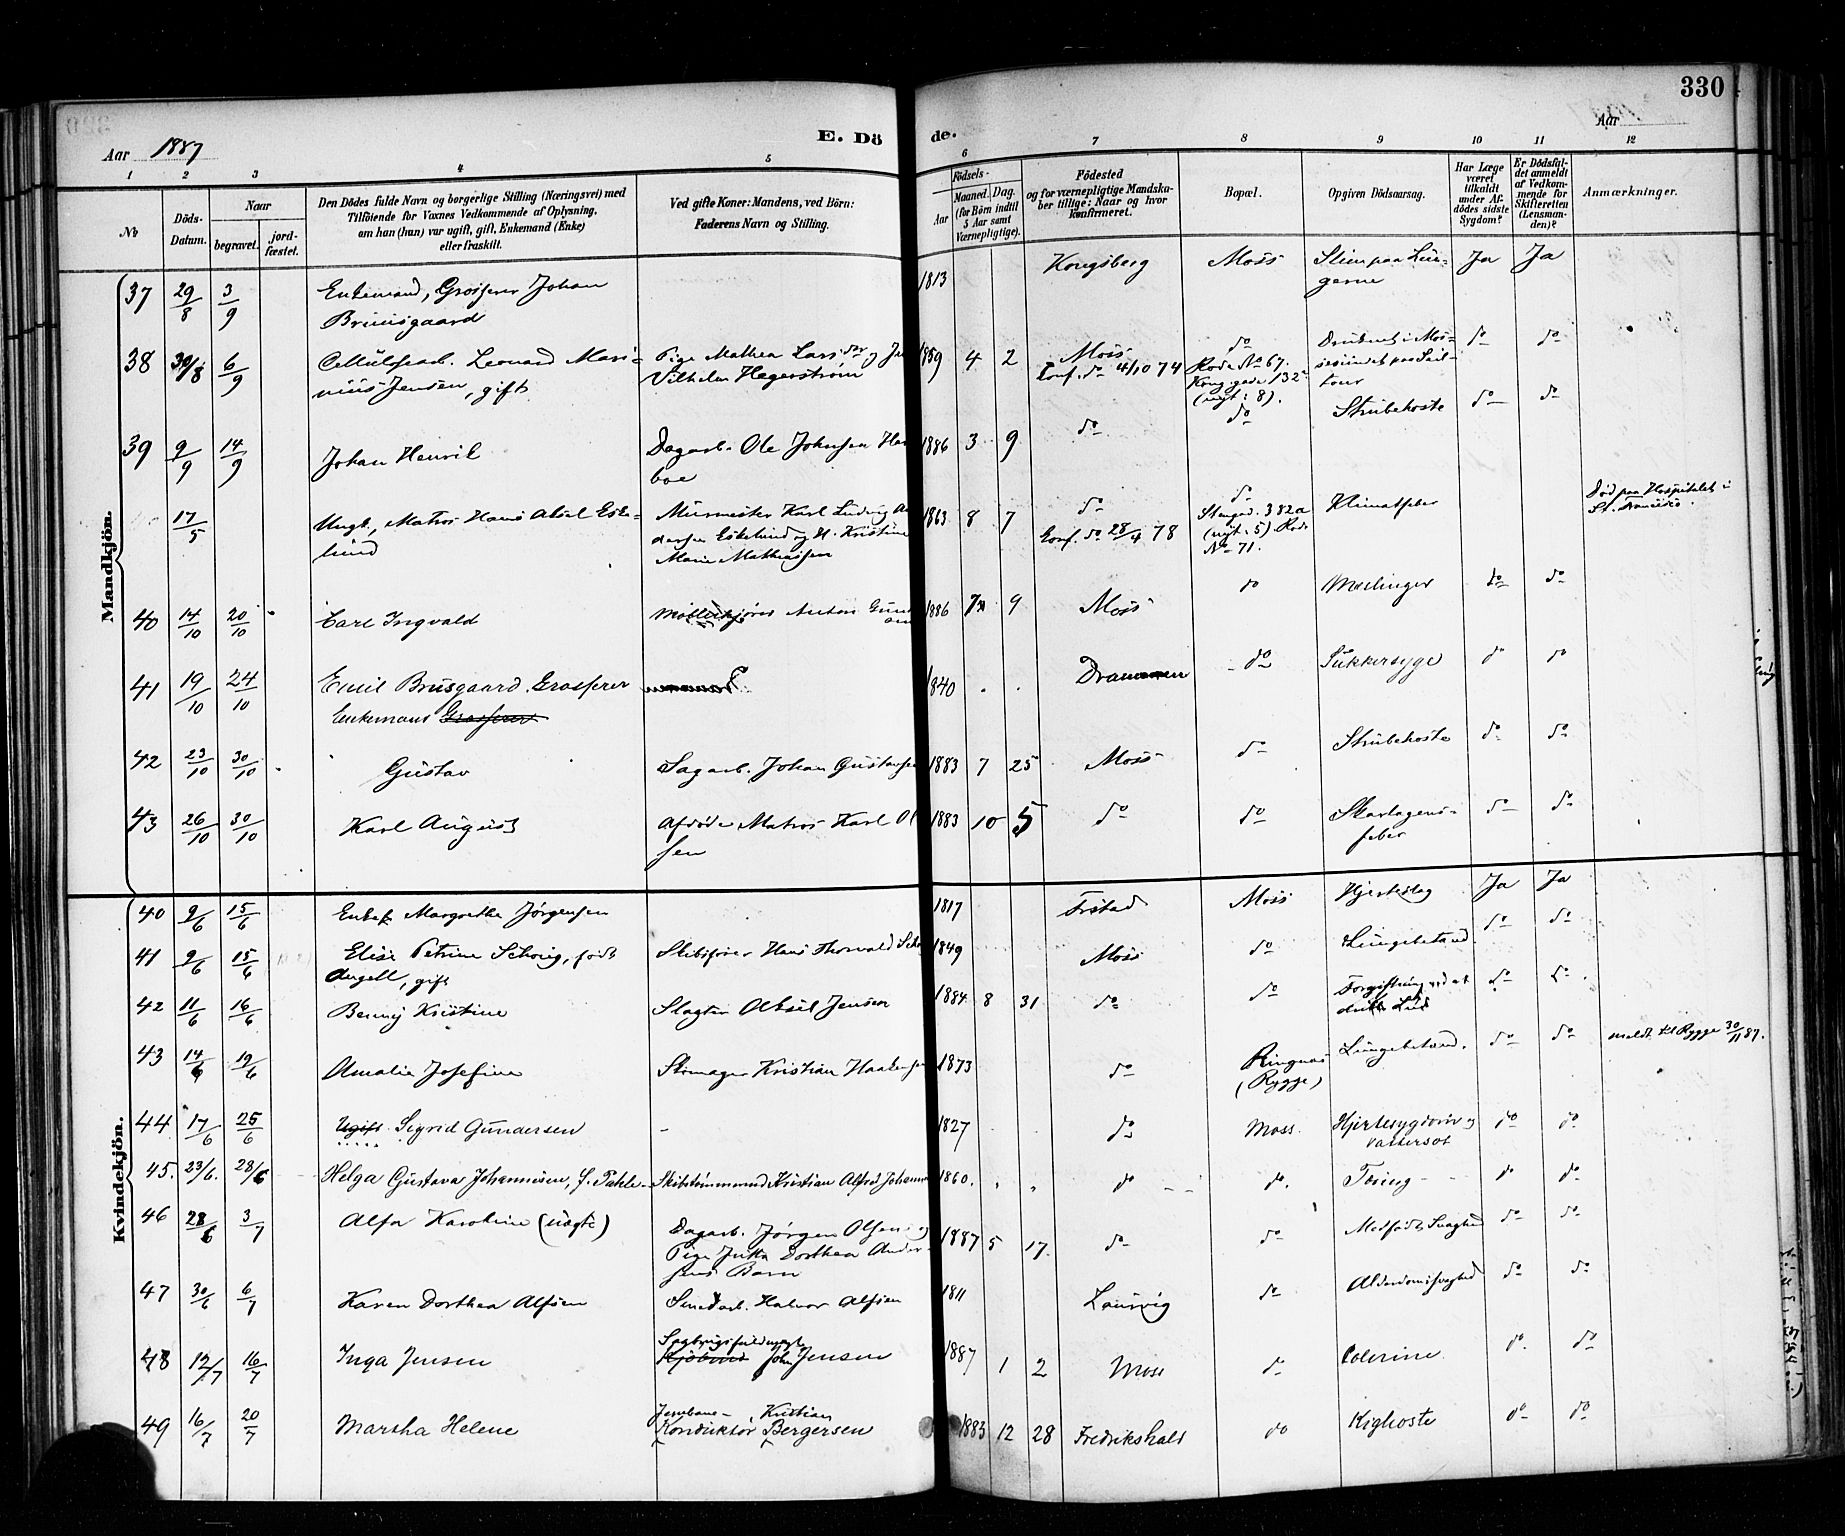 330
E. Dö
de.
Aar 1887
Aar
1 2 3 4 5 6 7 8 9 10 11 12
No
Döds-
Datum.
Naar
begravet.
jord-
fæstet.
Den Dödes fulde Navn og borgerlige Stilling (Næringsvei) med
Tilföiende for Voxnes Vedkommende af Oplysning,
om han (hun) var ugift, gift, Enkemand (Enke)
eller fraskilt.
Ved gifte Koner: Mandens, ved Börn:
Faderens Navn og Stilling.
Födsels-
Aar
Maaned. Dag.
(for Börn indtil
5 Aar samt
Værnepligtige).
Födested
og for værnepligtige Mandska-
ber tillige: Naar og hvor
konfirmeret.
Bopæl.
Opgiven Dödsaarsag.
Har Læge
været
tilkaldt
under Af-
dödes sidste
Sygdom?
Er Dödsfal-
det anmeldt
af Vedkom-
mende for
Skifteretten
(Lensman-
den)?
Anmærkninger.
Mandkjön.
37 29/8 3/9 Enkemand, Grosserer Johan 1813 Kongsberg Moss Sliim paa Lün- Ja Ja
gerne
38 30/8 6/9 Leonard Mari- Pige Mathea Lars dtr og 1859 4 2 Moss do do do
nius Jensen, gift Vilhelm Hagerström Konf. do 4/10 74 Rode No 67.
(nyt: 8).
39 9/9 14/9 Johan Henrik Dagarb. Ole Johnsen 1886 3 9 do do Strubehoste do do
boe
17/5 Ungk., Matros Hans Aksel Eske- Murmester Karl Ludvig 1863 8 7 do do Klimatfeber Död paa Hospitalet i
lund Eskelund og H. Kristine Konf. do 28/4 78 Stengad. 382a St. Francisco.
Marie Mathiassen (nyt: 5) Rode
No 71.
40 14/10 20/10 Carl Ingvald Anton 1886 7 9 Moss do Mæslinger do do
41 19/10 24/10 Emil Brusgaard. Grosserer 1840 Drammen do Sukkersyge do do
Enkemand Grosserer
42 23/10 30/10 Gustav Sagarb. Johan Gustavsen 1883 7 25 Moss do Strubehoste do do
43 26/10 30/10 Karl August Afdöde Matros Karl Ol 1883 10 5 do do Skarlagens- do do
sen feber
Kvindekjön.
40 9/6 15/6 Enke Margrethe Jörgensen 1817 Moss Hjerteslag Ja Ja
41 9/6 15/6 Elise Petrine Schoug, födt Skibsförer Hans Thorvald 1849 Moss do Lungebetænd. do do
Angell, gift
42 11/6 16/6 Benny Kristine Slagter Aksel Jensen 1884 8 31 do do Forgiftning ved at do do
drikke Lud
43 14/6 19/6 Amalie Josefine Skomager Kristian 1873 do Ringnæs Lungebetænd. do do meldt til Rygge 30/11 87.
(Rygge)
44 17/6 25/6 Ugift. Sigrid Gundersen - 1827 do Moss Hjertesygdom og do do
vattersot
45. 23/6. 28/6 Helga Gustava Johannesen, f. Skibstömmermd Kristian Alfred Johann 1860. do do. Tæring do do
46 28/6 3/7 Alfa Karoline (uægte) Dagarb. Jörgen Olsen og 1887 5 17. do do Medfödt Svaghed do do
Pige Jutta Dorthea Ander-
sens Barn
47 30/6 6/7 Karen Dorthea Alfsen Smedarb. Halvor Alfsen 1811 Laurvig do Alderdomssvaghed do do
48 12/7 16/7 Inga Jensen John Jensen 1887 1 2 Moss do Colerine do. do
49 16/7 20/7 Martha Helene Jernbane- Konduktör Kristian Bergersen 1883 12 28 Fredrikshald do Kighoste do do